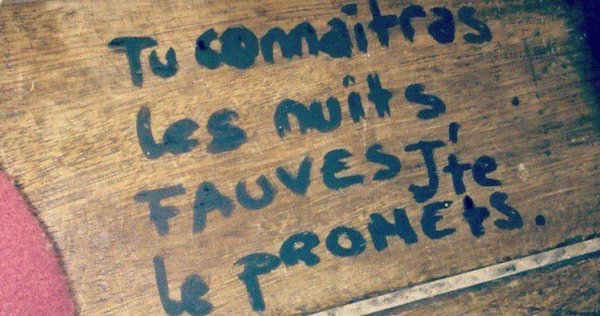 Tu connaîtras
les nuits
FAUVES, J'te
le PROMEts.